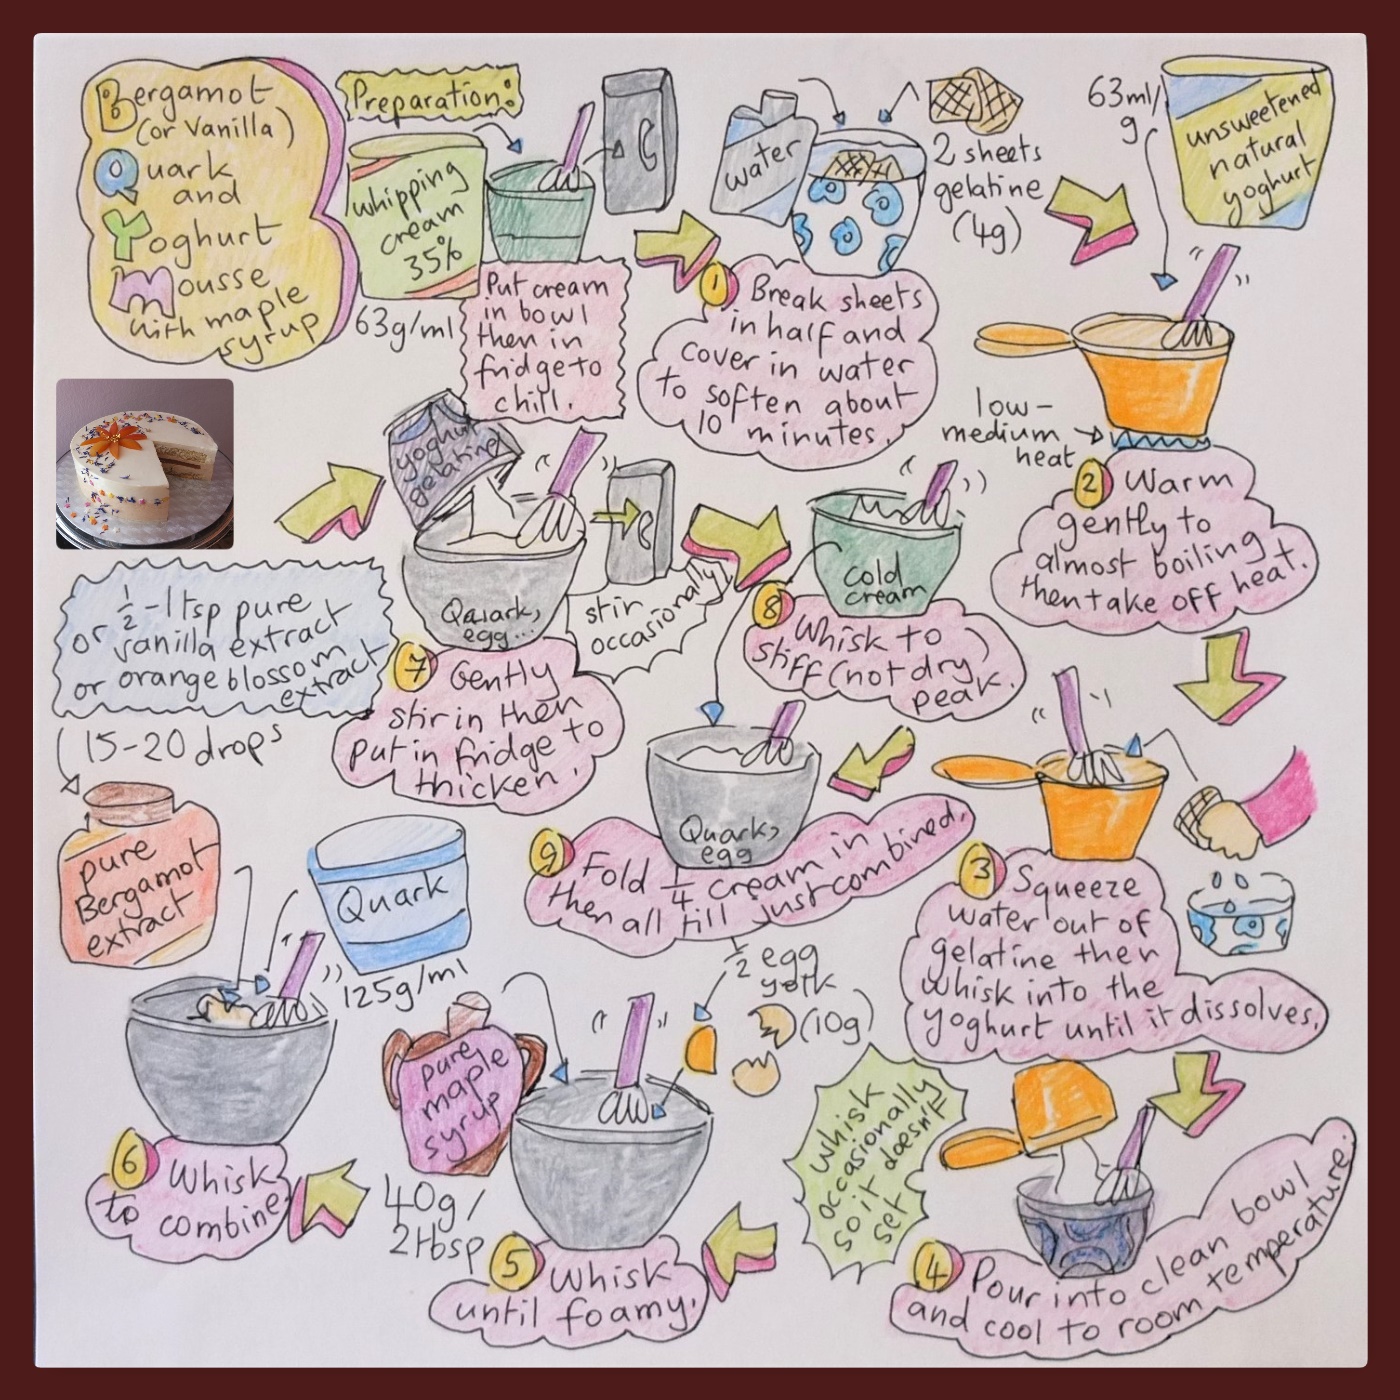 Bergamot
(or Vanilla)
Quark
and
Yoghurt
Mousse
with maple
syrup
Preparation:
whipping
cream
35%
63g/ml
Put cream
in bowl
then in
fridge to
chill.
water
2 sheets
gelatine
(4g)
1
Break sheets
in half and
cover in water
to soften about
10 minutes.
63ml/
g
unsweetened
natural
yoghurt
low-
medium
heat
2
Warm
gently to
almost boiling
then take off heat.
3
Squeeze
water out of
gelatine then
whisk into the
yoghurt until it dissolves.
4
Pour into clean bowl
and cool to room temperature.
whisk
occasionally
so it doesn't
set
1/2 egg
yolk
(10g)
pure
maple
syrup
40g/
2tbsp
5
Whisk
until foamy.
or 1/2-1tsp pure
vanilla extract
or orange blossom
extract
15-20 drops
pure
Bergamot
extract
Quark
125g/ml
6
Whisk
to combine
yoghurt
gelatine
Quark,
egg...
stir
occasionally
7
Gently
stir in then
put in fridge to
thicken.
cold
cream
8
Whisk to
stiff (not dry)
peak.
Quark,
egg
9
Fold 1/4 cream in
then all till just combined.